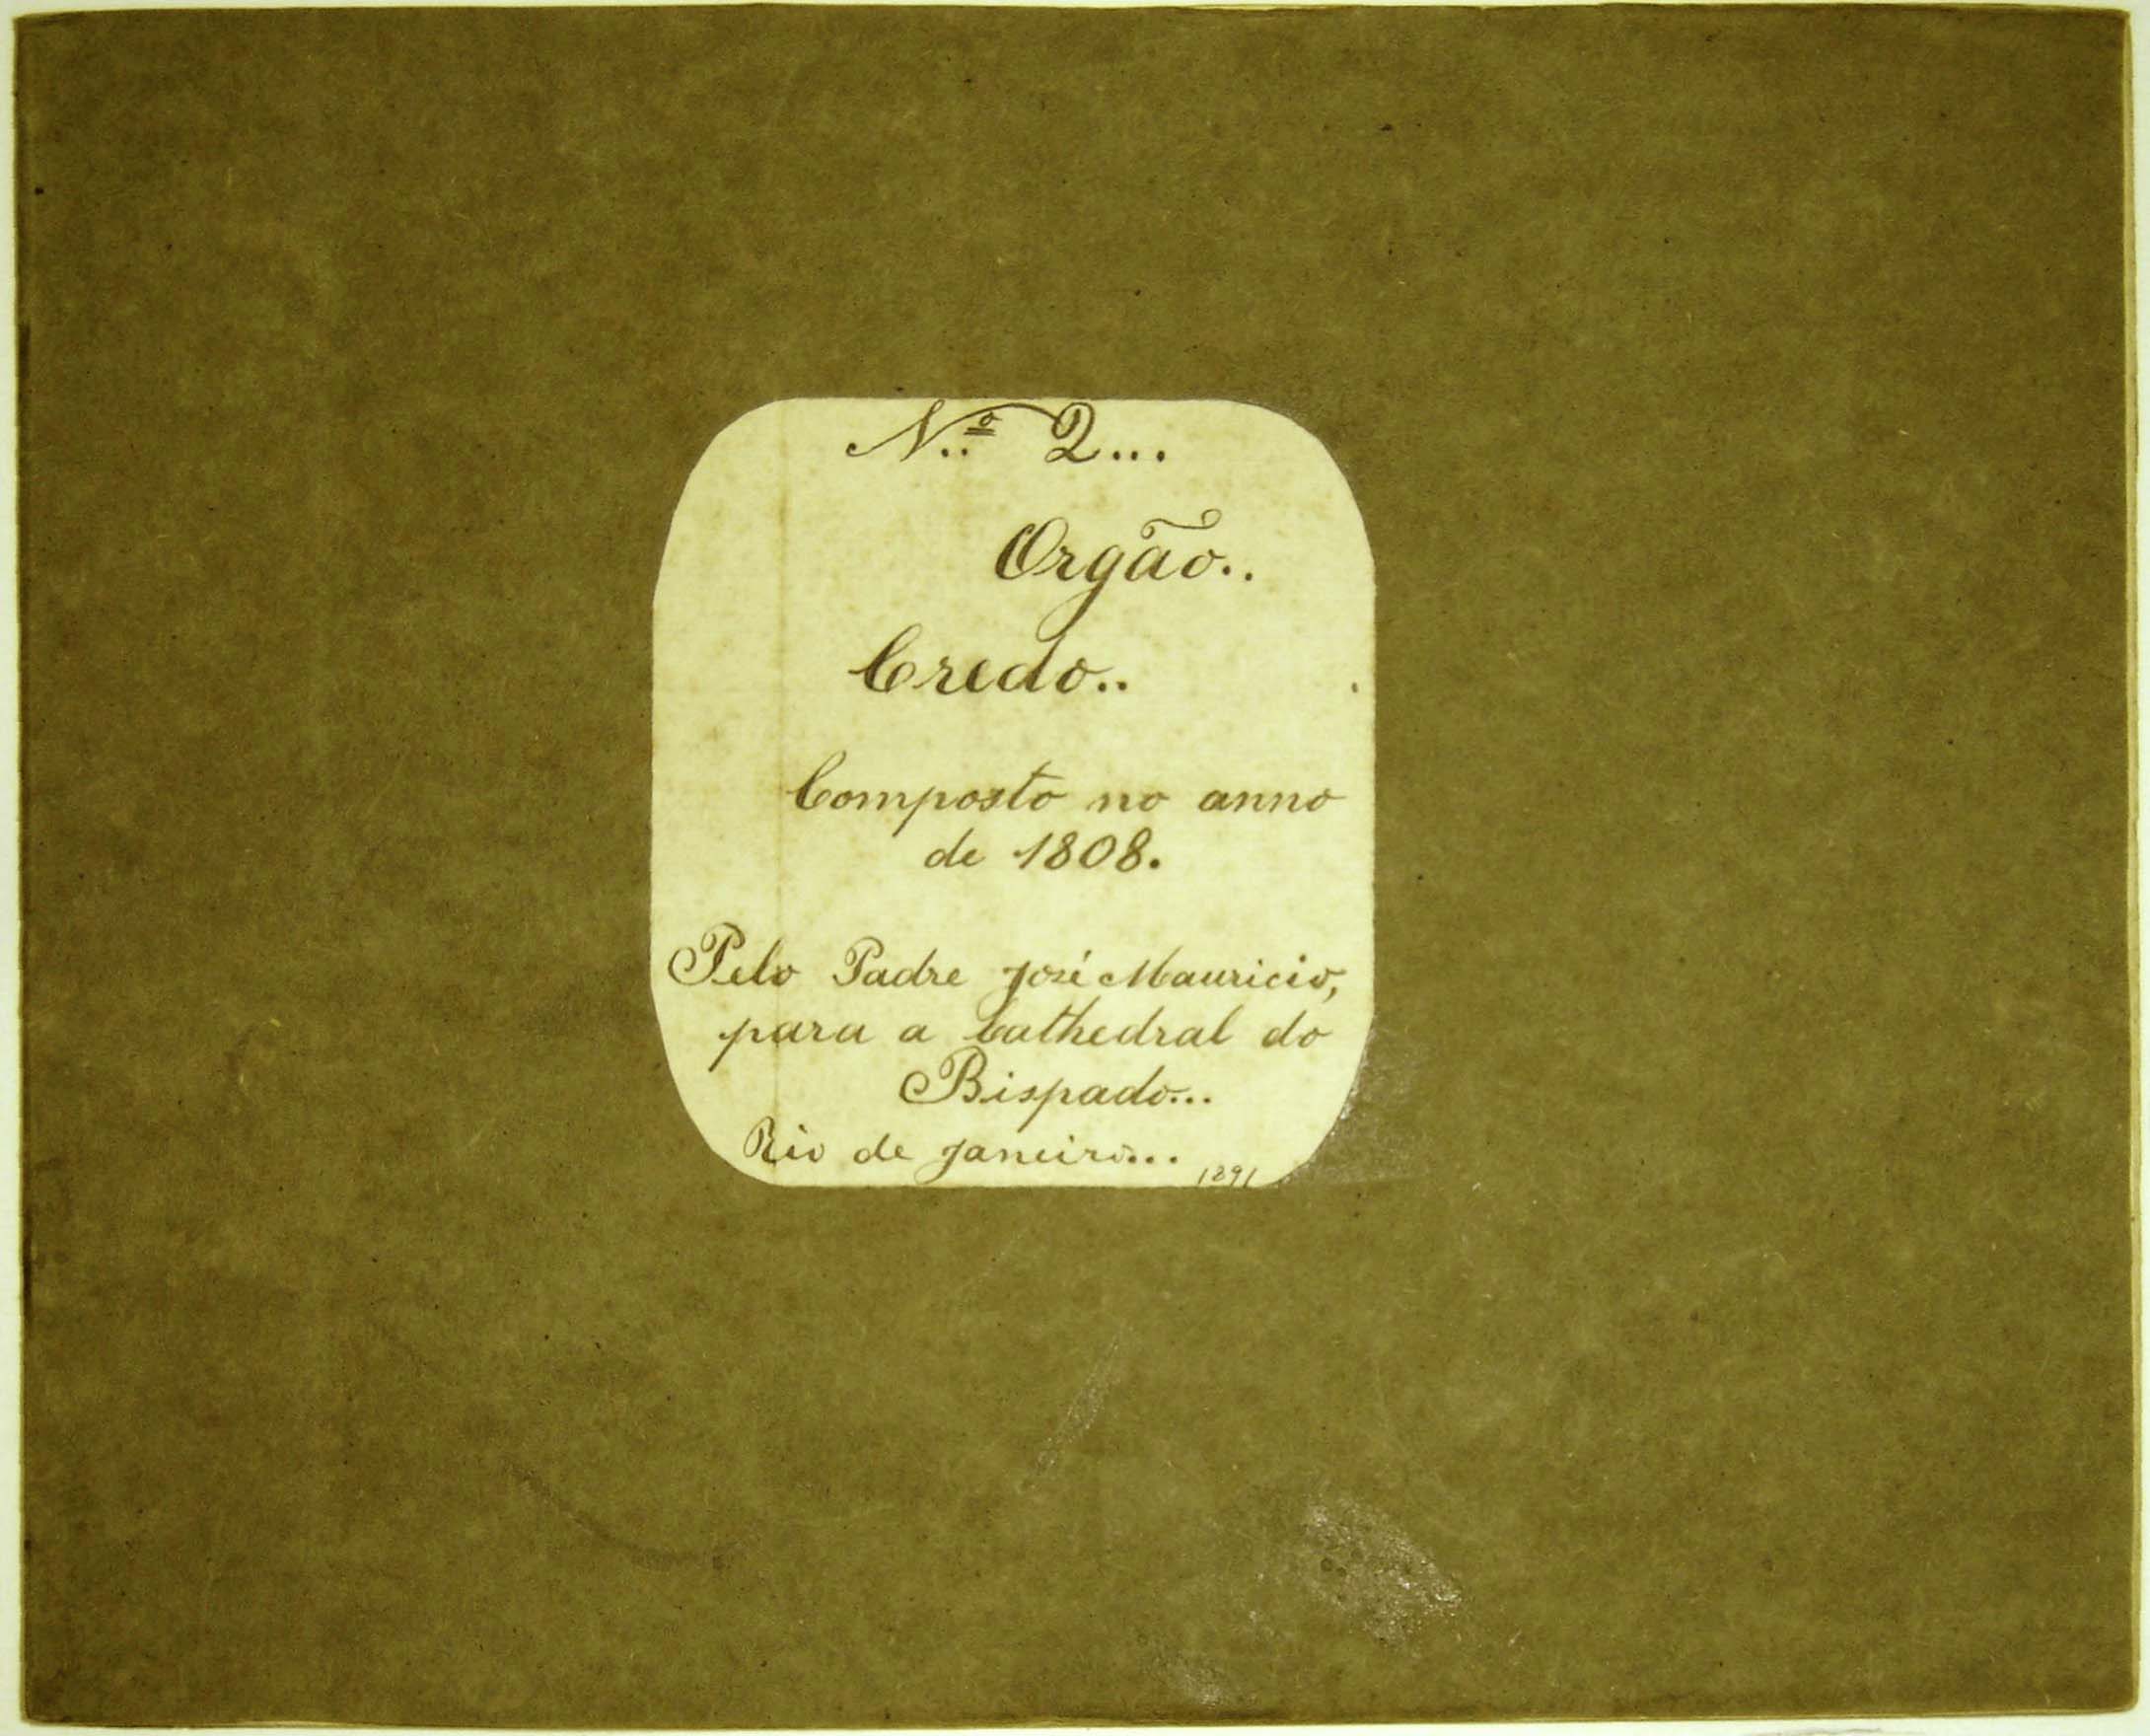 N.º 2...
Orgão..
Credo..
Composto no anno
de 1808.
Pelo Padre José Mauricio,
para a Cathedral do
Bispado...
Rio de Janeiro...
1891